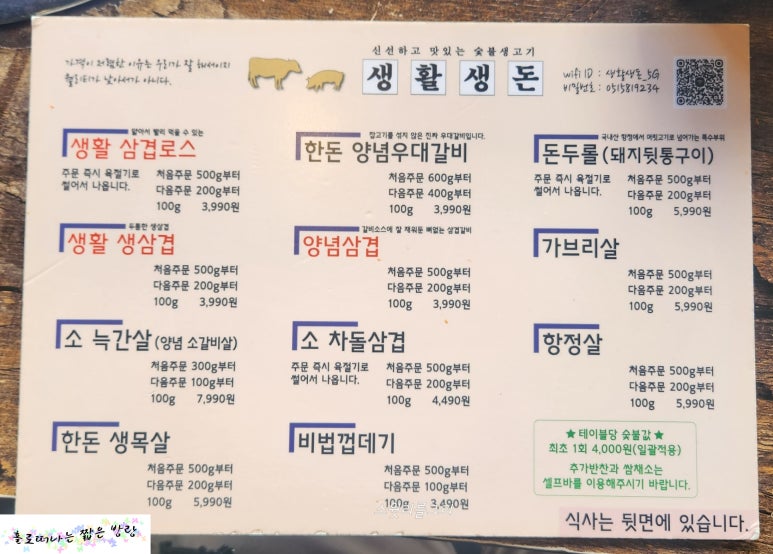 가격이 저렴한 이유는 우리가 잘 해서이지
퀄리티가 낮아서가 아니다.
신선하고 맛있는 숯불생고기
생활생돈
wifi ID : 생활생돈_5G
비밀번호 : 0515819234
얇아서 빨리 먹을 수 있는
생활 삼겹로스
주문 즉시 육절기로
썰어서 나옵니다.
처음주문 500g부터
다음주문 200g부터
100g 3,990원
잡고기를 섞지 않은 진짜 우대갈비입니다.
한돈 양념우대갈비
처음주문 600g부터
다음주문 400g부터
100g 3,990원
국내산 항정에서 머릿고기로 넘어가는 특수부위
돈두롤(돼지뒷통구이)
주문 즉시 육절기로
썰어서 나옵니다.
처음주문 500g부터
다음주문 200g부터
100g 5,990원
두툼한 생삼겹
생활 생삼겹
처음주문 500g부터
다음주문 200g부터
100g 3,990원
갈비소스에 잘 재워둔 뼈없는 삼겹갈비
양념삼겹
처음주문 500g부터
다음주문 200g부터
100g 3,990원
가브리살
처음주문 500g부터
다음주문 200g부터
100g 5,990원
소 늑간살(양념 소갈비살)
처음주문 300g부터
다음주문 100g부터
100g 7,990원
소 차돌삼겹
주문 즉시 육절기로
썰어서 나옵니다.
처음주문 500g부터
다음주문 200g부터
100g 4,490원
항정살
처음주문 500g부터
다음주문 200g부터
100g 5,990원
한돈 생목살
처음주문 500g부터
다음주문 200g부터
100g 5,990원
비법껍데기
처음주문 500g부터
다음주문 100g부터
100g 3,490원
★ 테이블당 숯불값 ★
최초 1회 4,000원(일괄적용)
추가반찬과 쌈채소는
셀프바를 이용해주시기 바랍니다.
식사는 뒷면에 있습니다.
홀로떠나는 짧은 방랑